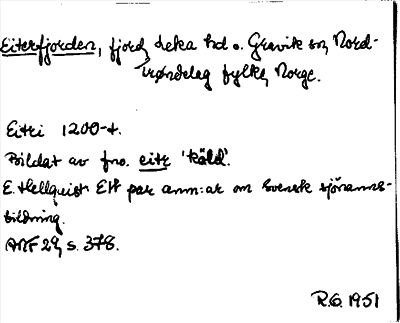 Eiterfjorden, fjord, Leka hd o. Gravik sn, Nord-
trøndelag fylke, Norge.
Eitri 1200-t.
Bildat av fno. eitr 'köld'.
E. Hellquist Ett par anm:ar om svensk sjönamns-
bildning.
ANF 29, s. 378.
R.G. 1951